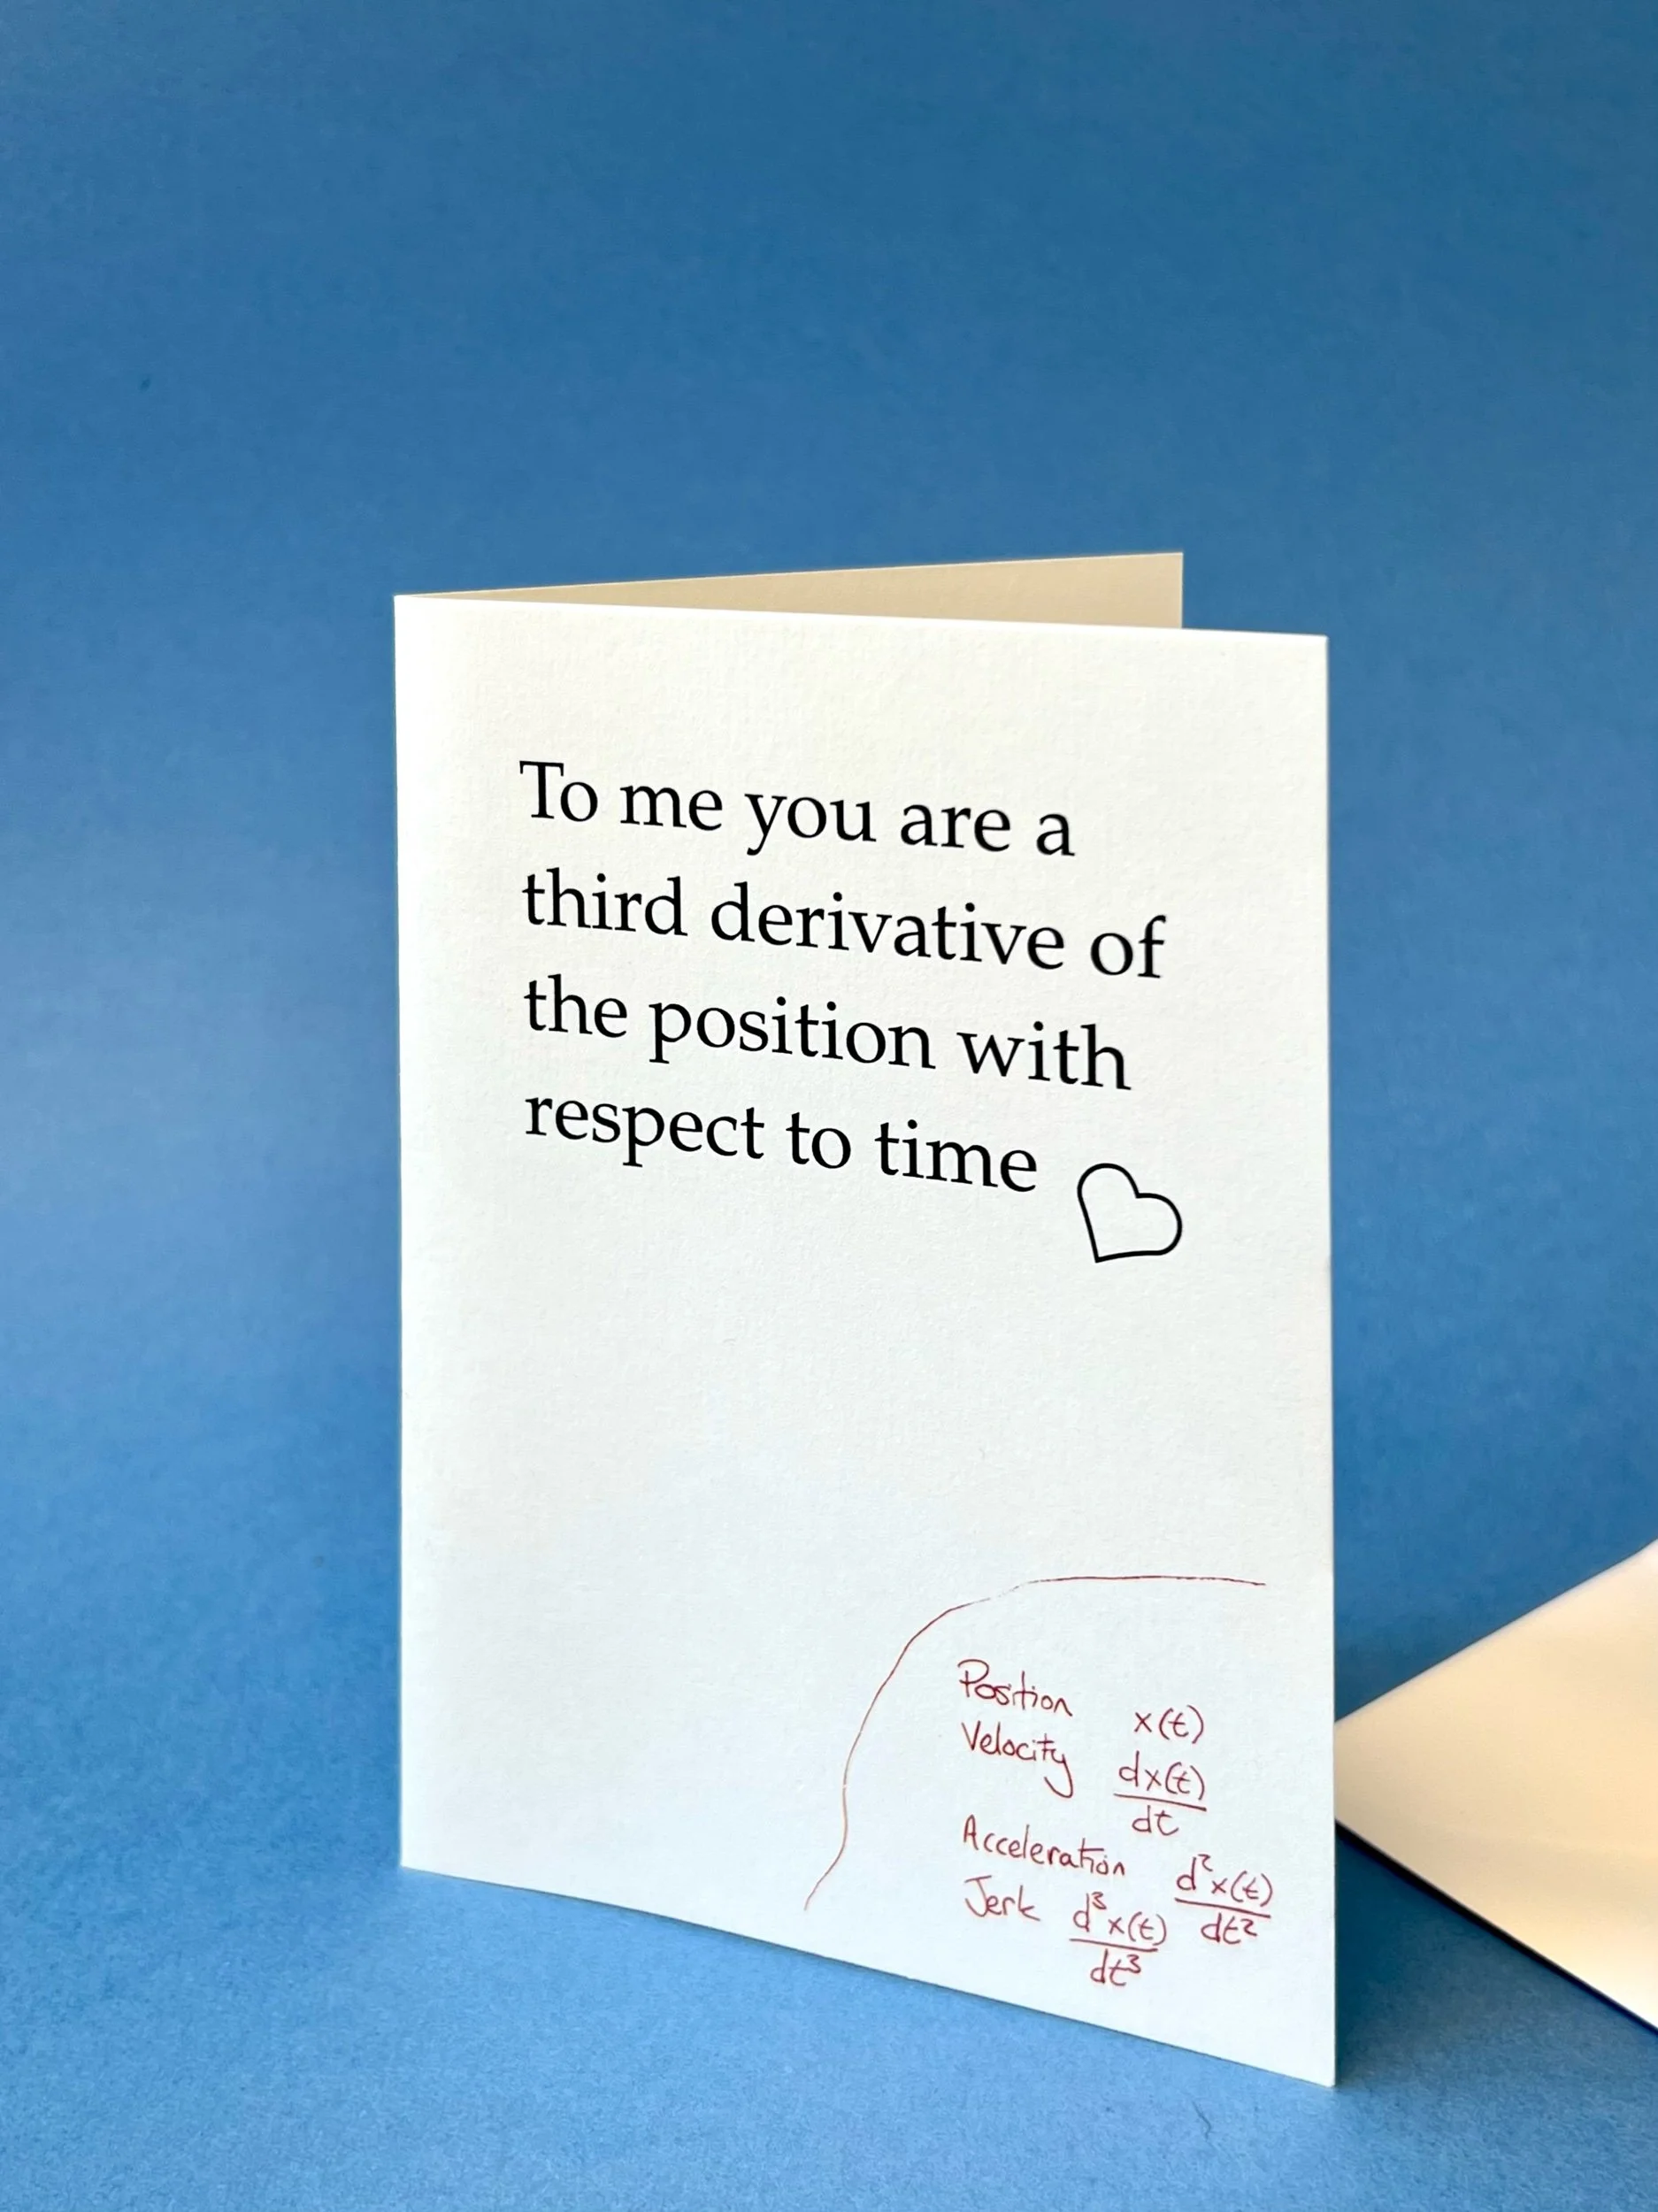 To me you are a
third derivative of
the position with
respect to time ♡
Position x(t)
Velocity dx(t)/dt
Acceleration d²x(t)/dt²
Jerk d³x(t)/dt³